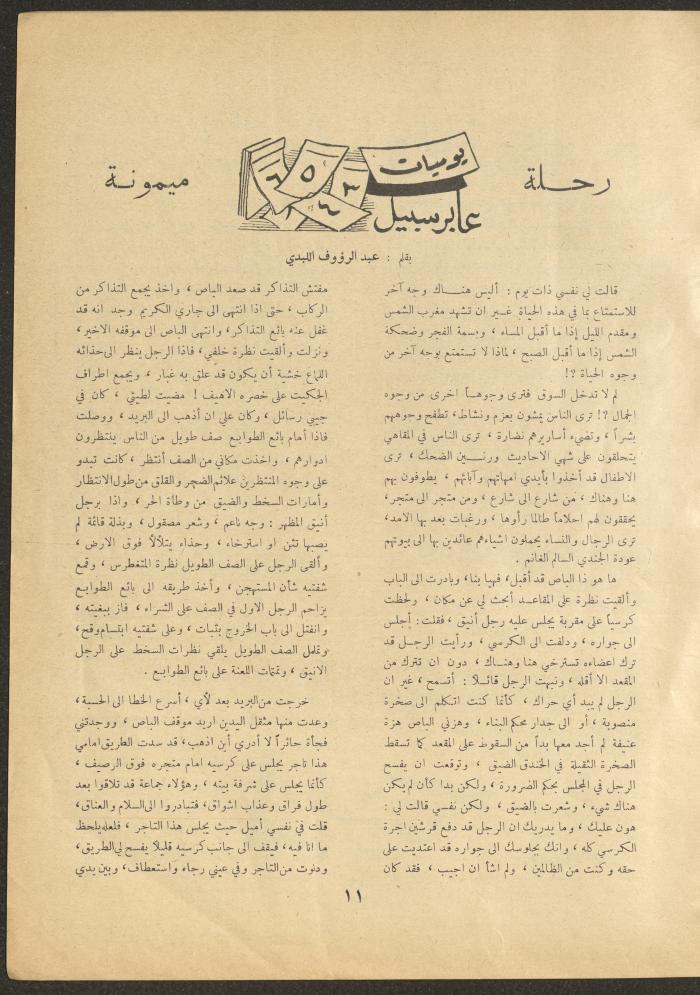 رحلة
يوميات
عابر سبيل
ميمونة
٦ ٥ ٣ ٤
بقلم : عبد الرؤوف اللبدي
قالت لي نفسي ذات يوم : أليس هناك وجه آخر
للاستمتاع بما في هذه الحياة غير ان تشهد مغرب الشمس
ومقدم الليل إذا ما أقبل المساء ، وبسمة الفجر وضحكة
الشمس إذا ما أقبل الصبح ، لماذا لا تستمتع بوجه آخر من
وجوه الحياة ؟!
لم لا تدخل السوق فترى وجوهاً اخرى من وجوه
الجمال ؟! ترى الناس يمشون بعزم ونشاط، تطفح وجوههم
بشراً ، وتضيء أساريرهم نضارة ، ترى الناس في المقاهي
يتحلقون على شهي الاحاديث ورنين الضحك ، ترى
الاطفال قد أخذوا بأيدي امهاتهم وآبائهم ، يطوفون بهم
هنا وهناك ، من شارع الى شارع ، ومن متجر الى متجر،
يحققون لهم احلاماً طالما رأوها ، ورغبات بعد بها الامد،
ترى الرجال والنساء يحملون اشياءهم عائدين بها الى بيوتهم
عودة الجندي السالم الغانم .
ها هو ذا الباص قد أقبل، فهيا بنا، وبادرت الى الباب
وألقيت نظرة على المقاعد أبحث لي عن مكان ، ولحظت
كرسياً على مقربة يجلس عليه رجل أنيق ، فقلت: أجلس
الى جواره ، ودلفت الى الكرسي ، ورأيت الرجل قد
ترك اعضاءه تسترخي هنا وهناك ، دون ان تترك من
المقعد الا أقله ، ونبهت الرجل قائلاً : أتسمح ، غير ان
الرجل لم يبد أي حراك ، كأنما كنت اتكلم الى صخرة
منصوبة ، أو الى جدار محكم البناء ، وهزني الباص هزة
عنيفة لم أجد معها بداً من السقوط على المقعد كما تسقط
الصخرة الثقيلة في الخندق الضيق ، وتوقعت ان يفسح
الرجل في المجلس بحكم الضرورة ، ولكن بدا كأن لم يكن
هناك شيء ، وشعرت بالضيق ، ولكن نفسي قالت لي :
هون عليك ، وما يدريك ان الرجل قد دفع قرشين اجرة
الكرسي كله ، وانك بجلوسك الى جواره قد اعتديت على
حقه وكنت من الظالمين ، ولم اشأ ان اجيب ، فقد كان
مفتش التذاكر قد صعد الباص ، واخذ يجمع التذاكر من
الركاب ، حتى اذا انتهى الى جاري الكريم وجد انه قد
غفل عنه بائع التذاكر، وانتهى الباص الى موقفه الاخير،
ونزلت وألقيت نظرة خلفي، فاذا الرجل ينظر الى حذائه
اللماع خشية أن يكون قد علق به غبار ، ويجمع اطراف
الجكيت على خصره الاهيف ! مضيت لطيتي ، كان في
جيبي رسائل ، وكان علي ان أذهب الى البريد ، ووصلت
فاذا أمام بائع الطوابع صف طويل من الناس ينتظرون
ادوارهم ، واخذت مكاني من الصف أنتظر ، كانت تبدو
على وجوه المنتظرين علائم الضجر والقلق من طول الانتظار
وأمارات السخط والضيق من وطأة الحر ، واذا برجل
أنيق المظهر : وجه ناعم ، وشعر مصقول ، وبذلة قائمة لم
يصبها تثن او استرخاء ، وحذاء يتلألأ فوق الارض ،
وألقى الرجل على الصف الطويل نظرة المتغطرس ، وقمع
شفتيه شأن المستهجن ، وأخذ طريقه الى بائع الطوابع
يزاحم الرجل الاول في الصف على الشراء ، فاز ببغيته ،
وانفتل الى باب الخروج بثبات ، وعلى شفتيه ابتسام وقح،
وتململ الصف الطويل يلقي نظرات السخط على الرجل
الانيق ، وتمتمات اللعنة على بائع الطوابع .
خرجت من البريد بعد لأي ، أسرع الخطا الى الحسبة،
وعدت منها مثقل اليدين اريد موقف الباص ، ووجدتني
فجأة حائراً لا أدري أين اذهب، قد سدت الطريق امامي
هذا تاجر يجلس على كرسيه امام متجره فوق الرصيف ،
كأنما يجلس على شرفة بيته ، وهؤلاء جماعة قد تلاقوا بعد
طول فراق وعذاب اشواق، فتبادروا الى السلام والعناق،
قلت في نفسي أميل حيث يجلس هذا التاجر ، فلعله يلحظ
ما انا فيه، فيقف الى جانب كرسيه قليلا يفسح لي الطريق،
ودنوت من التاجر وفي عيني رجاء واستعطاف، وبين يدي
١١